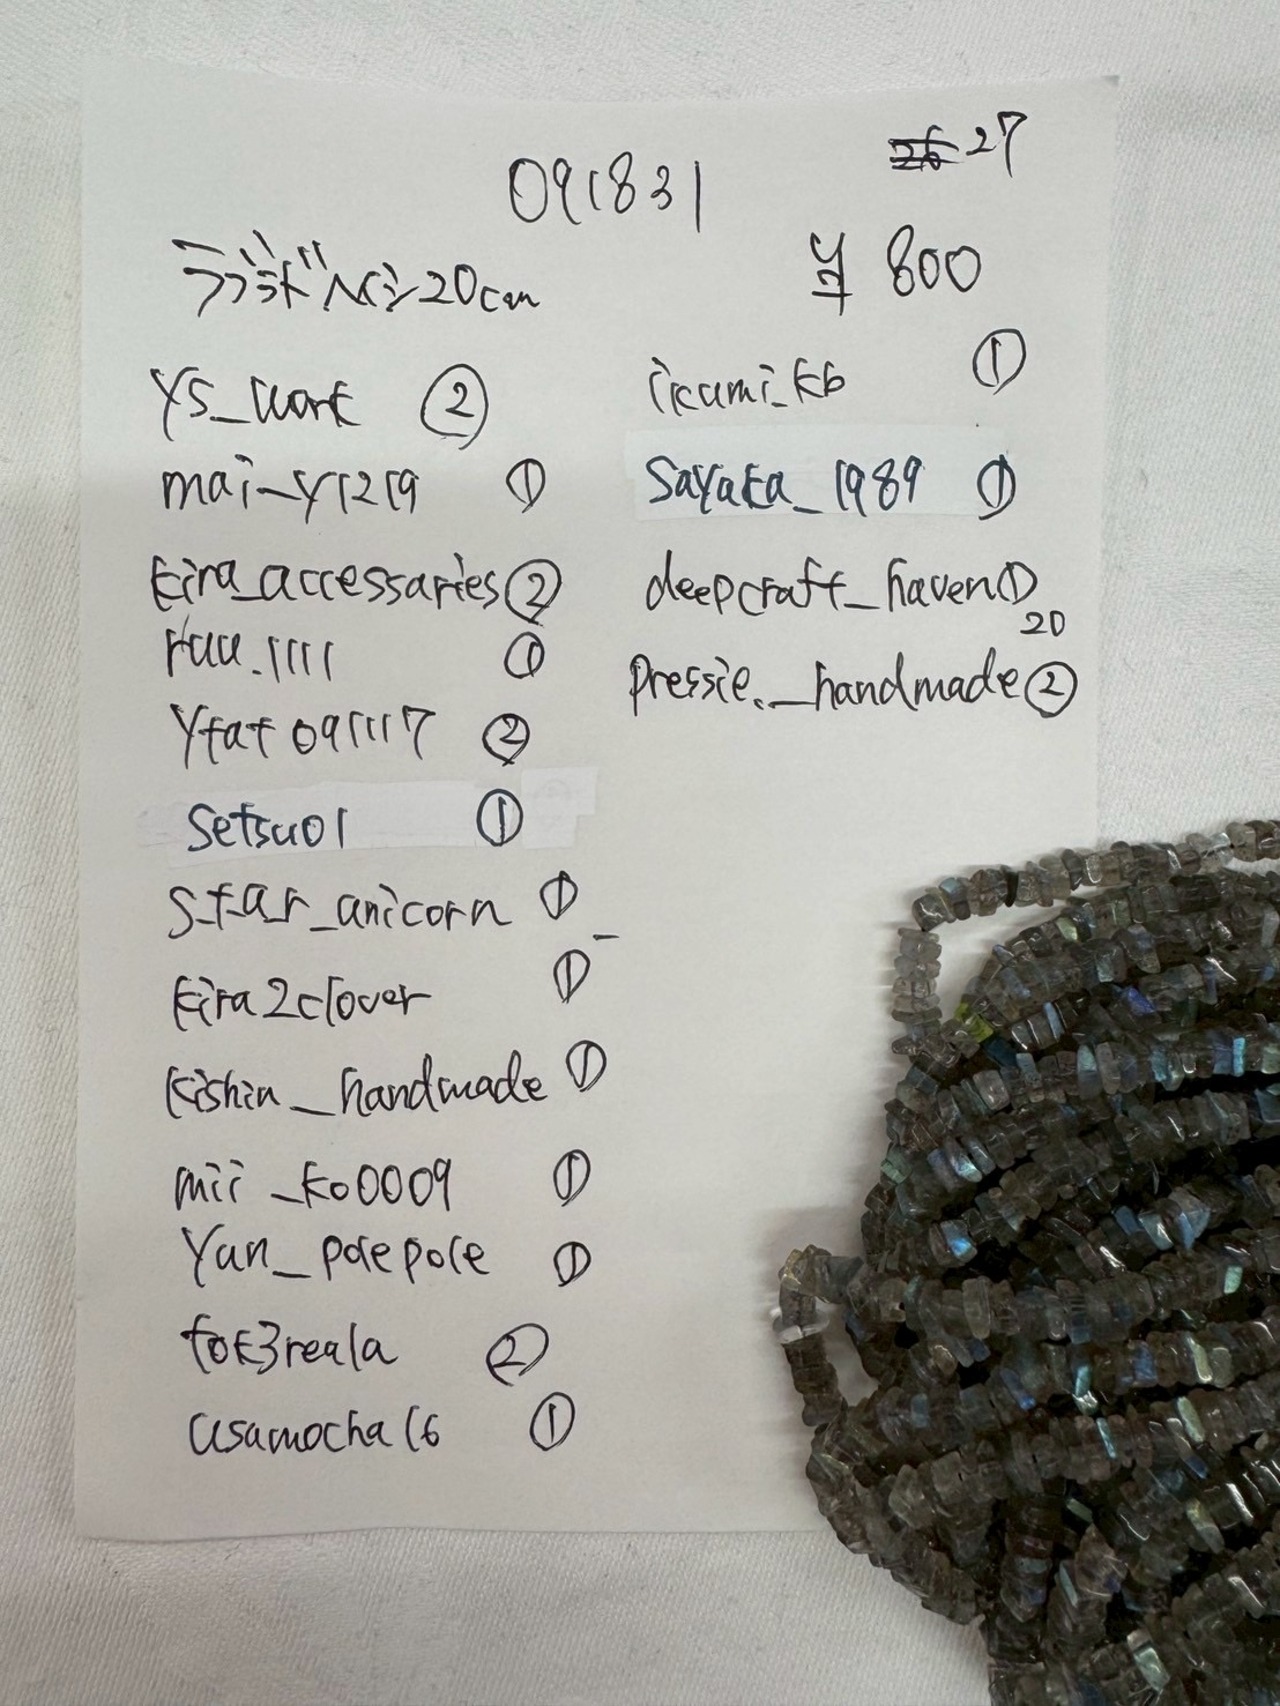 27
091831
¥ 800
20cm
YS_work ②
mai_y1219 ①
kira_accessaries ②
ruu.1111 ①
Ytat091117 ②
Setsu01 ①
star_unicorn ①
kira2clover ①
kishin_handmade ①
mii_ko0009 ①
Yun_polepole ①
tok3reala ②
usamocha16 ①
ikumi_kb ①
Sayaka_1989 ①
deepcraft_haven ①
20
pressie._handmade ②